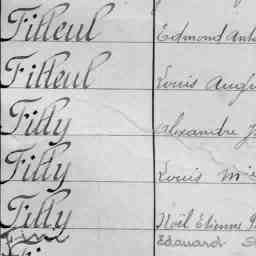 Filleul Edmond
Filleul Louis
Filly Alexandre
Filly Louis
Filly Noël Etienne
Edouard